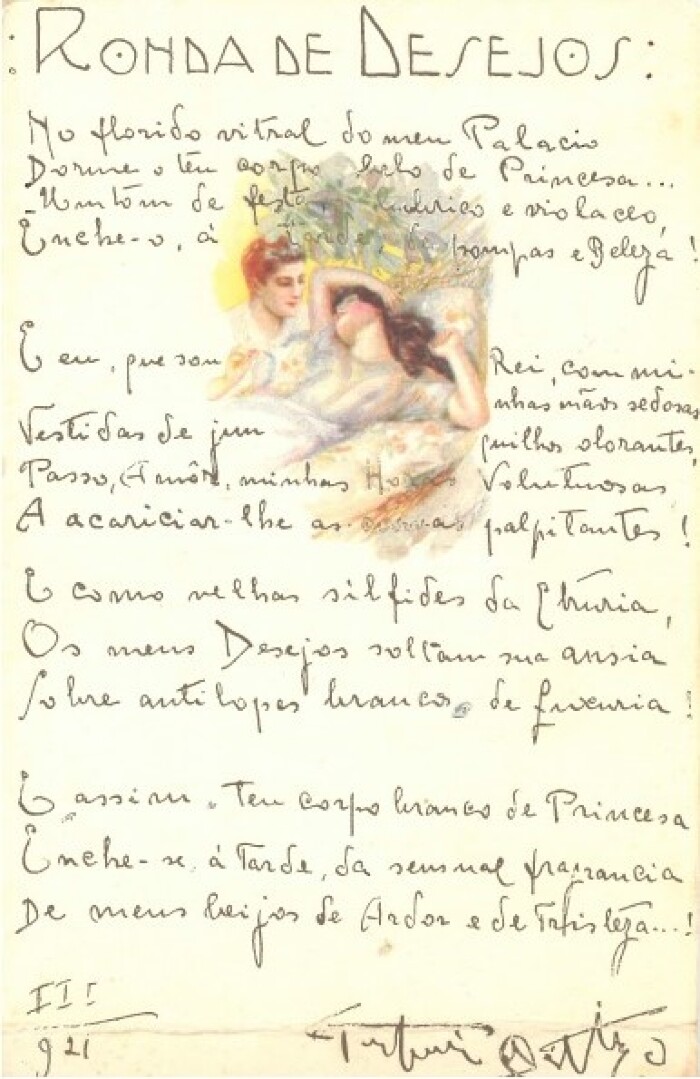 : RONDA DE DESEJOS :
No florido vitral do meu Palacio
Dorme o teu corpo belo de Princesa...
- Um tom de festa, ludrico e violaceo,
Enche-o, á tarde, de pompas e Beleza !
E eu, que sou Rei, com mi-
nhas mãos sedosas
Vestidas de jun quilhos olorantes,
Passo, Amôr, minhas Horas Volutuosas
A acariciar-lhe as curvas palpitantes !
E como velhas silfides da Etruria,
Os meus Desejos soltam sua ansia
Sobre antilopes brancos, de Luxuria !
E assim, teu corpo branco de Princesa
Enche-se, á Tarde, da sensual fragrancia
De meus beijos de Ardor e de Tristeza...!
III
921